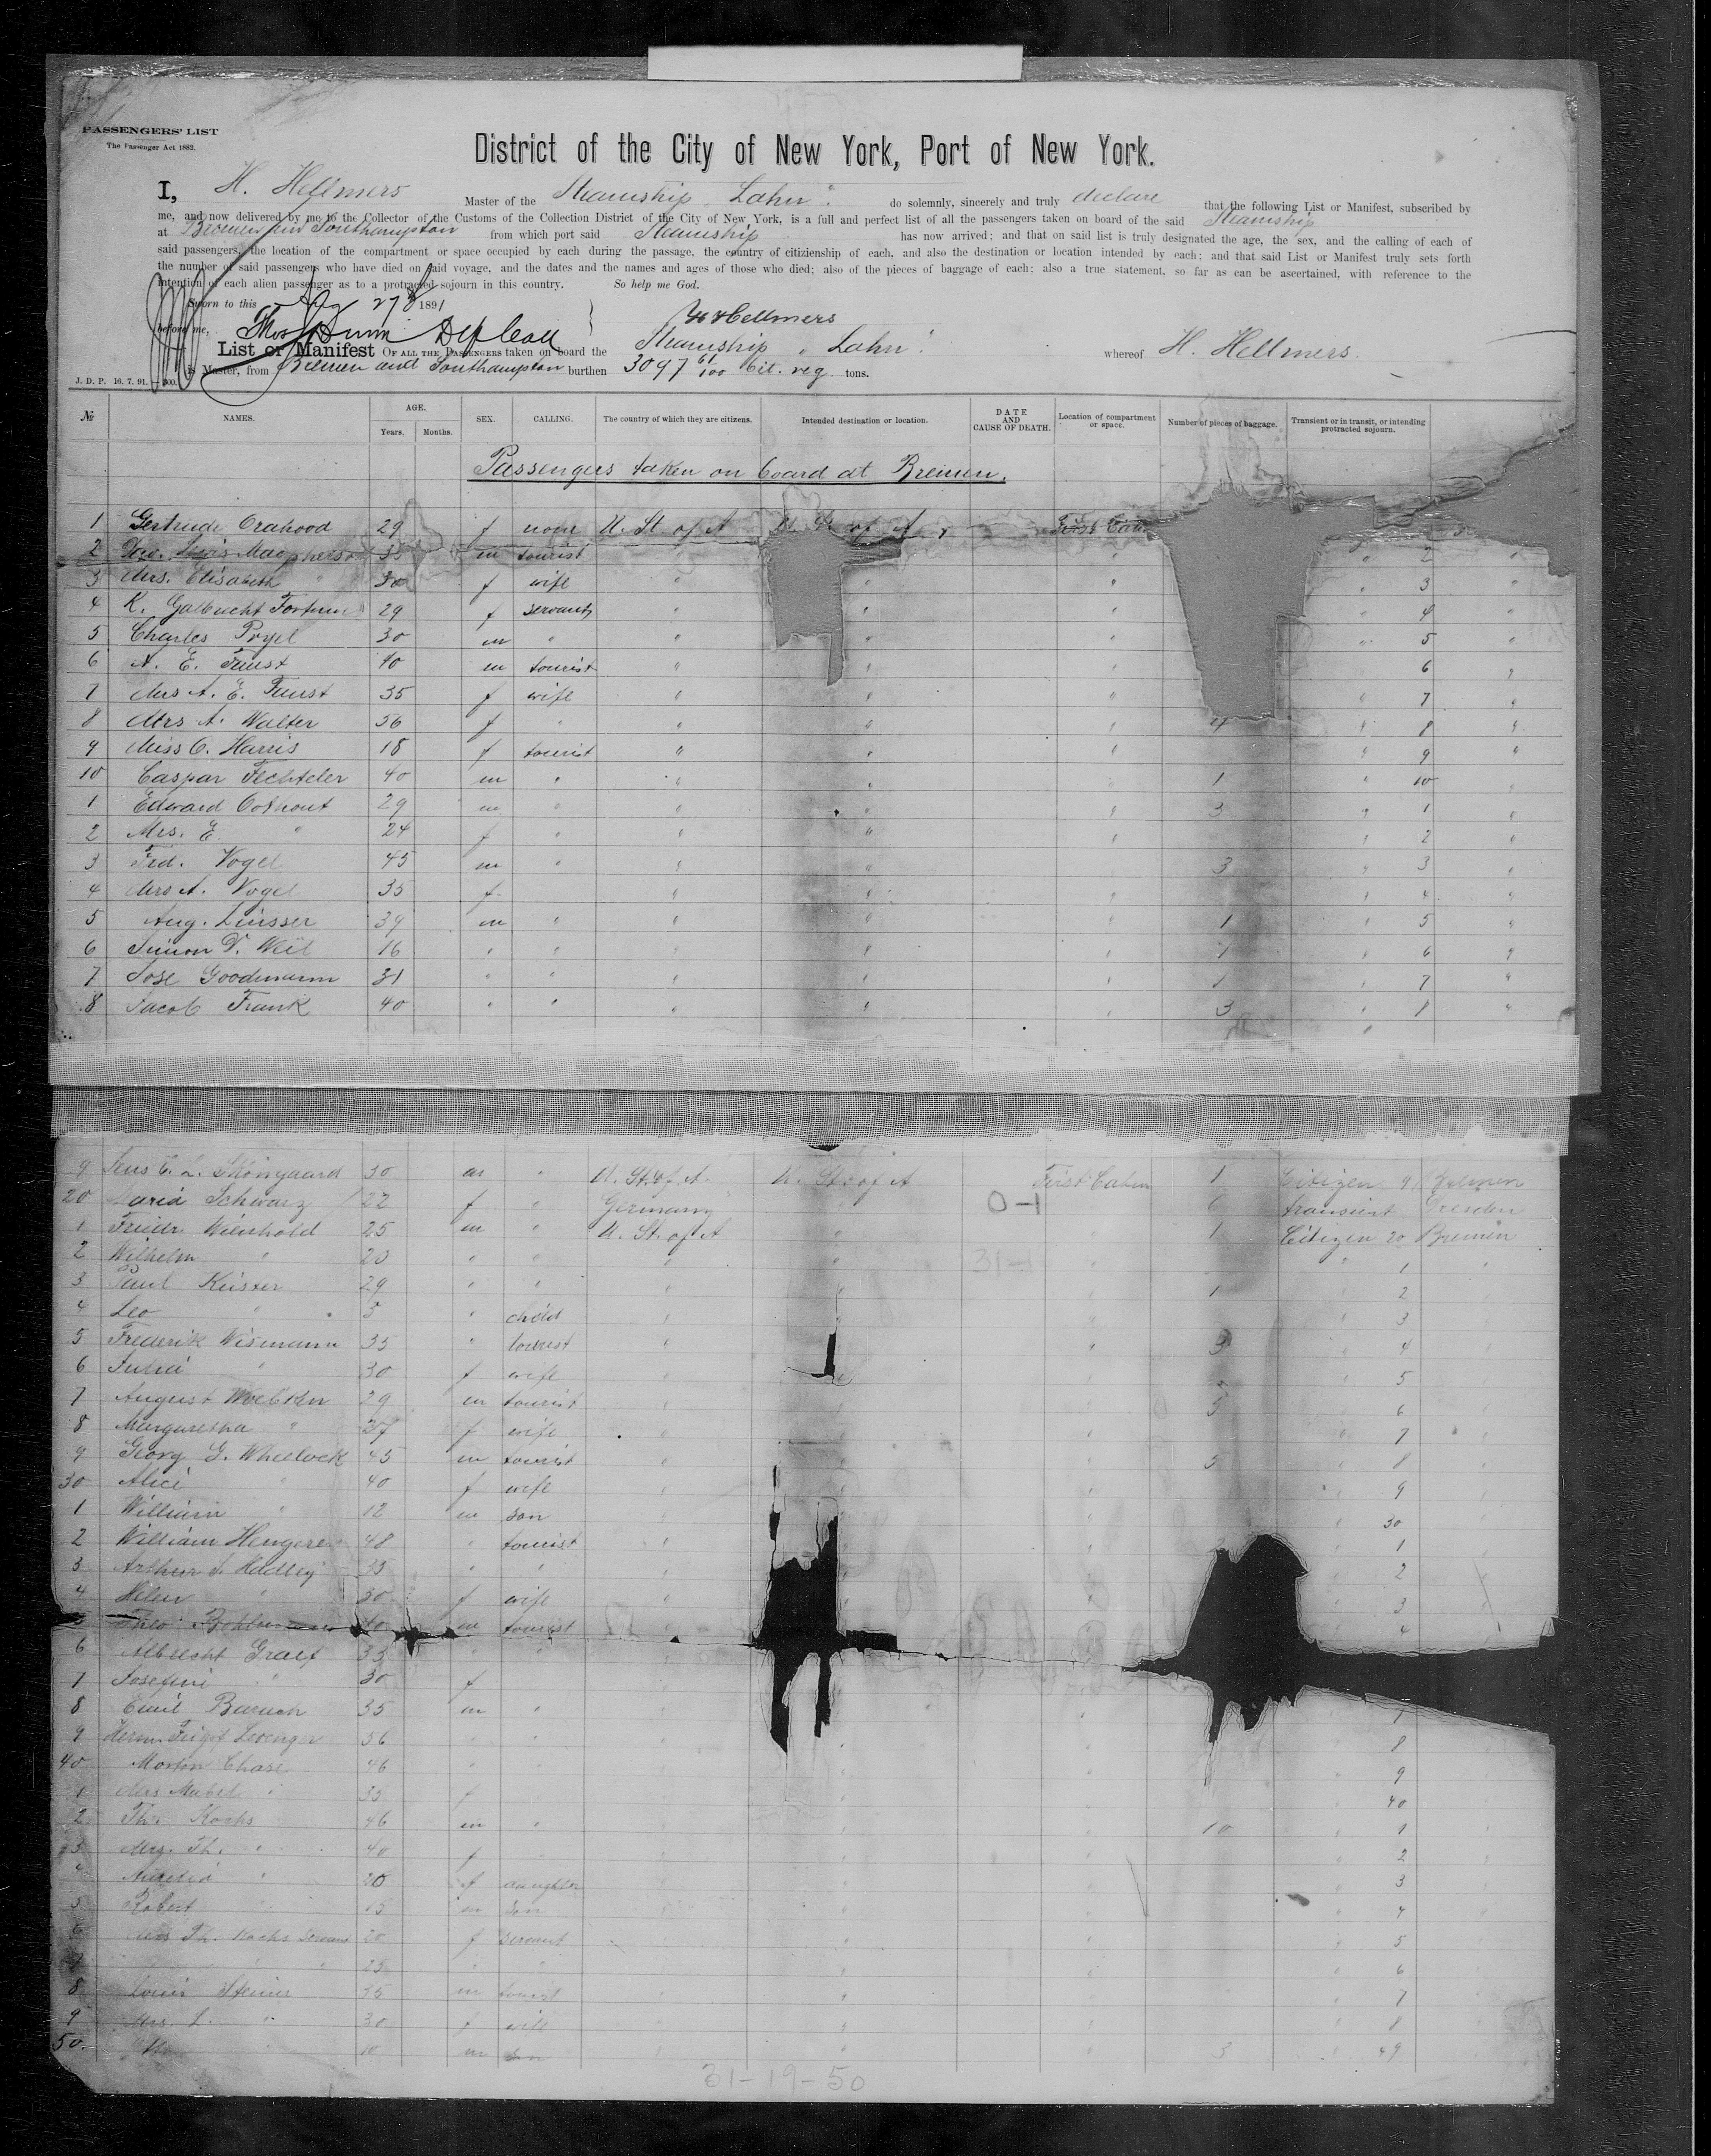 PASSENGERS' LIST
The Passenger Act 1882.
District of the City of New York, Port of New York.
I, H. Hellmers Master of the Steamship "Lahn" do solemnly, sincerely and truly declare that the following List or Manifest, subscribed by
me, and now delivered by me to the Collector of the Customs of the Collection District of the City of New York, is a full and perfect list of all the passengers taken on board of the said Steamship
at Bremen and Southampton from which port said Steamship has now arrived; and that on said list is truly designated the age, the sex, and the calling of each of
said passengers, the location of the compartment or space occupied by each during the passage, the country of citizienship of each, and also the destination or location intended by each; and that said List or Manifest truly sets forth
the number of said passengers who have died on said voyage, and the dates and the names and ages of those who died; also of the pieces of baggage of each; also a true statement, so far as can be ascertained, with reference to the
intention of each alien passenger as to a protracted sojourn in this country. So help me God.
Sworn to this Aug 27th 1891
before me, Thos Dunn H Hellmers
List or Manifest OF ALL THE PASSENGERS taken on board the Steamship "Lahn" whereof H. Hellmers.
is Master, from Bremen and Southampton burthen 3097 61/100 reg tons.
J. D. P. 16. 7. 91.
№ NAMES. AGE. Years. Months. SEX. CALLING. The country of which they are citizens. Intended destination or location. DATE AND CAUSE OF DEATH. Location of compartment or space. Number of pieces of baggage. Transient or in transit, or intending protracted sojourn.
Passengers taken on board at Bremen.
1 Gertrude Orahood 29 f none U. St. of A U. St. of A First Cab.
2 38 m tourist " " 2 "
3 Mrs. Elisabeth " 30 f wife " " " " 3 "
4 K. Galbrecht 29 f servants " " " " 4 "
5 Charles 30 m " " " " " 5 "
6 A. E. Faust 40 m tourist " " " 6 "
7 Mrs A. E. Faust 35 f wife " " " " 7 "
8 Mrs A. Walter 36 f " " " " 4 " 8 "
9 Miss C. Harris 18 f tourist " " " " 9 "
10 Caspar Fechteler 40 m " " " " 1 " 10 "
1 Edward 29 m " " " " 3 " 1 "
2 Mrs. E. " 24 f " " " " " 2 "
3 Frd. Vogel 45 m " " " " 3 " 3 "
4 Mrs A. Vogel 35 f " " " " 4 "
5 Aug. 39 m " " " " 1 " 5 "
6 Simon D. Weil 16 " " " " " 1 " 6 "
7 Jose Goodmann 31 " " " " " 1 " 7 "
8 Jacob Frank 40 " " " " " 3 " 8 "
9 Jens C. L. 30 m " U. St. of A. U. St. of A First Cabin 1 Citizen 9 Bremen
20 Maria Schwarz 22 f " Germany " 0-1 6 transient Dresden
1 Friedr. Wienhold 25 m " U. St. of A " " 1 Citizen 20 Bremen
2 Wilhelm " 20 " " " " 31-1 " " 1 "
3 Paul Küster 29 " " " " " 1 " 2 "
4 Leo " 5 " child " " " " 3
5 Frederik Wismann 35 " tourist " " 3 " 4
6 Julia " 30 f wife " " " 5
7 August Woebken 29 m tourist " " " 5 " 6
8 Margaretha " 27 f wife " " " " 7
9 Georg G. Wheelock 45 m tourist " " " 5 " 8
30 Alice " 40 f wife " " " " 9
1 William " 12 m son " " " " 30
2 William 48 " tourist " " " " 1
3 Arthur S. Hedley 35 " " " " " " 2
4 Helen " 30 f wife " " " 3
Theo 40 m tourist " 4
6 Albrecht Graef 35 " "
7 Josefine " 30 f
8 Emil Baruch 35 m " " 7
9 56 " " " 8
40 Morton Chase 46 " " " 9
1 Mrs Mabel " 35 f " 40
2 Th. Kochs 46 m " " 10 " 1
3 Mrs. Th. " 40 f " " " 2
" 20 f daughter " " " 3
5 Robert " 15 m son " " " 4
6 Mrs Th. Kochs servant 20 f servant " " " 5
" " 25 " " " " 6
8 Louis Steiner 35 m tourist " " " 7
9 Mrs. L. " 30 f wife " " " 8
50. " 10 m son " 3 " 49
31-19-50